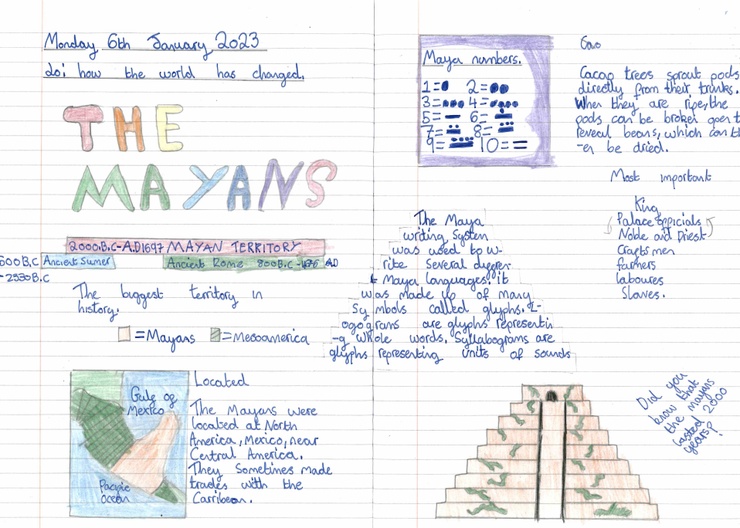 Monday 6th January 2023
do: how the world has changed.
THE
MAYANS
2000.B.C-A.D1697 MAYAN TERRITORY
Ancient Sumer
Ancient Rome 800B.C - 476 AD
500B.C
- 2530B.C
The biggest territory in
history.
=Mayans =Mesoamerica
Gulf of
Mexico
Pacific
ocean
Located
The Mayans were
located at North
America, Mexico, near
Central America.
They Sometimes made
trades with the
Carribean.
Maya numbers.
1= 2=
3= 4=
5= 6=
7= 8=
9= 10=
The Maya
writing System
was used to w-
rite several differen-
t Maya languages. it
was made up of many
Symbols called glyphs. L-
ogograms are glyphs representin
-g whole words, Syllabograms are
glyphs representing units of sounds
Cacao trees sprout pods
directly from their trunks.
When they are ripe, the
pods can be broken open t
reveal beans, which can th
-en be dried.
Most important
King
Palace officials
Noble and Priest
Crafts men
farmers
laboures
Slaves.
Did you
know that
the mayans
lasted 2000
years?